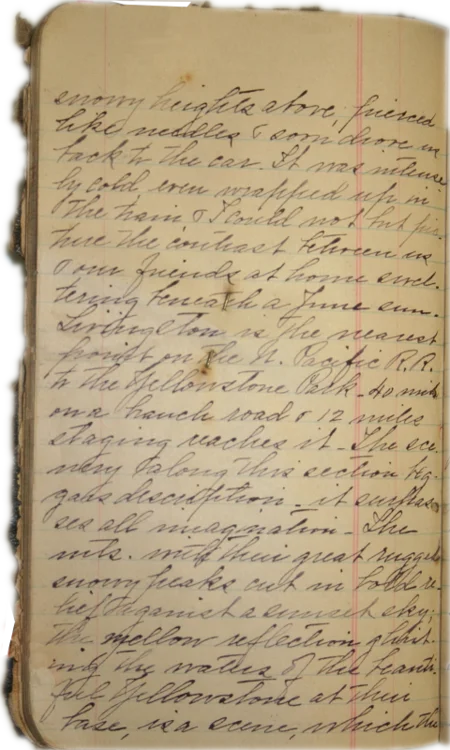 snowy heights above, pierced
like needles & soon drove us
back to the car. It was intense
ly cold, even wrapped up in
the train, & I could not but pic-
ture the contrast between us
& our friends at home swel-
tering beneath a June sun.
Livingston is the nearest
point on the N. Pacific R.R.
to the Yellowstone Park - 40 miles
on a branch road & 12 miles
staging reaches it - The sce
nery along this section beg-
gars description - it surpas
ses all imagination - The
mts. with their great rugged
snowy peaks cut in bold re-
lief against a sunset sky;
the mellow reflection glint-
ing the waters of the beauti-
ful Yellowstone at their
base, is a scene, which the